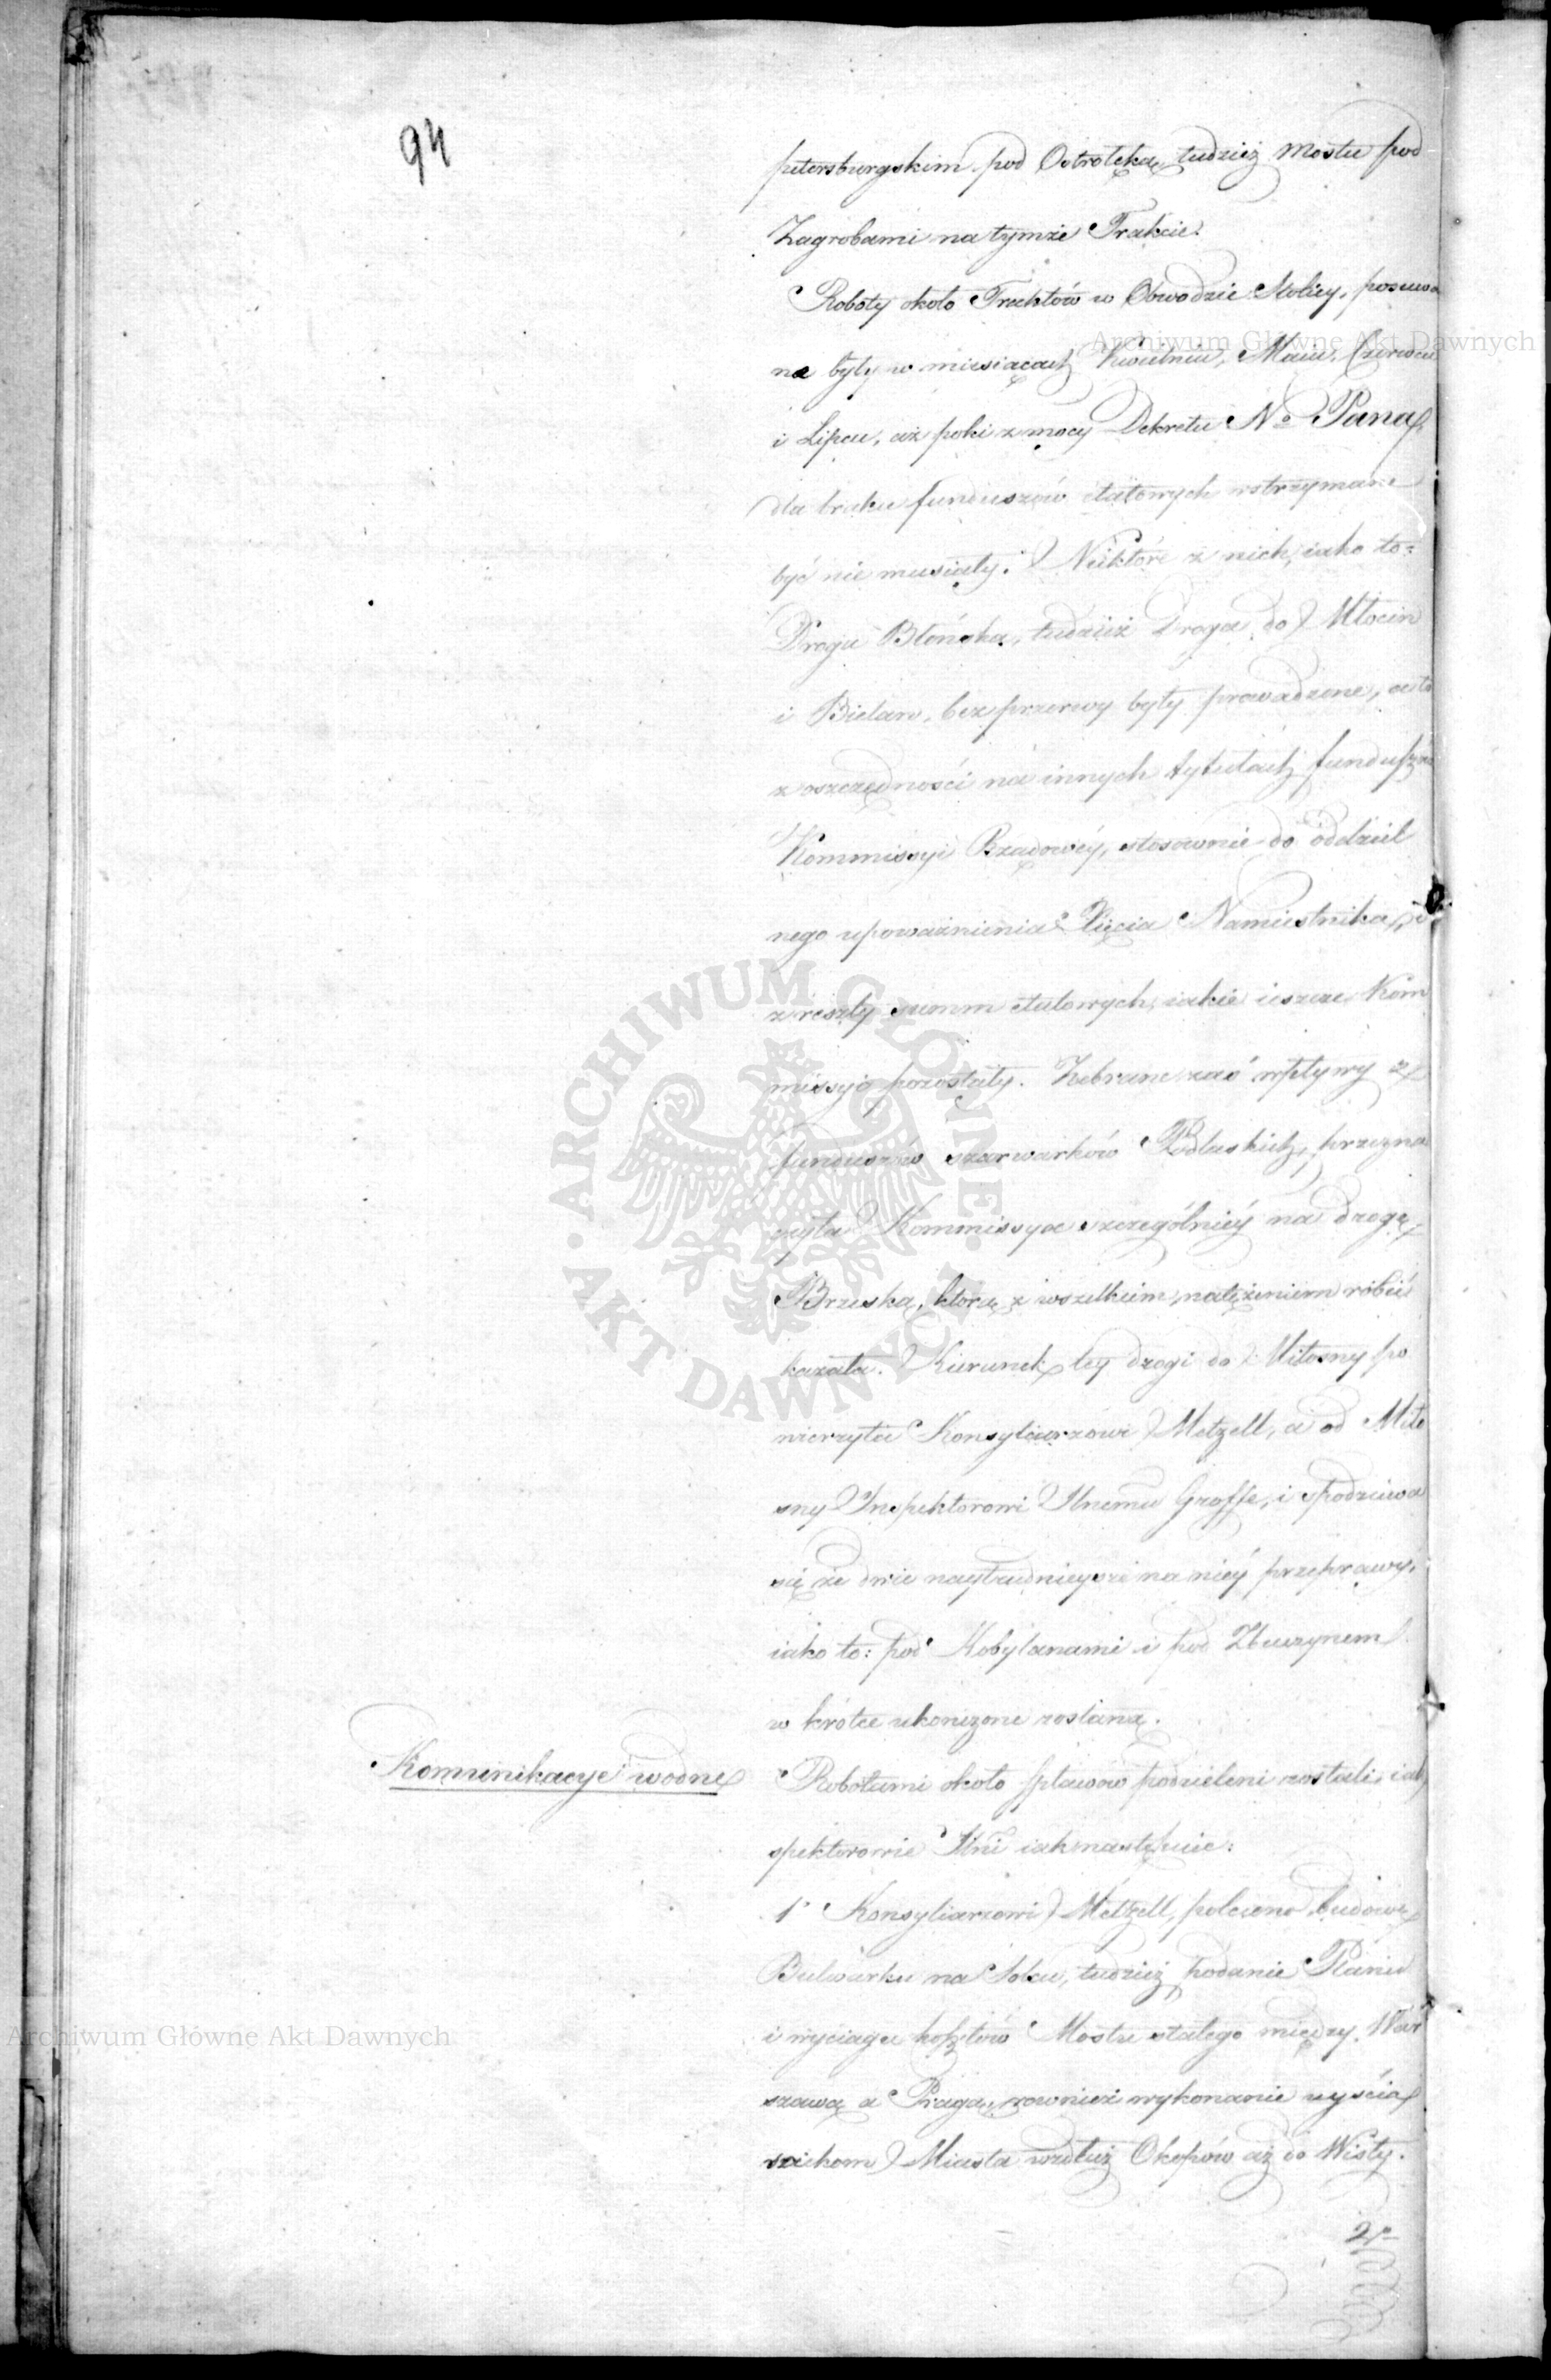 94
petersburgskim pod Ostrołęką, tudzież mostu pod
Zagrobami na tymże Trakcie.
Roboty około Traktów w Obwodzie Stolicy, posuwa
ne były w miesiącach Kwietniu, Maiu, Czerwcu
i Lipcu, aż poki z mocy Dekretu No Pana
dla braku funduszów etatowych wstrzymane
być nie musiały. Niektóre z nich, iako to:
Droga Błońska, tudzież Droga do Młocin
i Bielan, bez przerwy były prowadzone, a to
z oszczędności na innych tytułach funduszu
Kommissyi Rządowéy, stosownie do oddziel
nego upoważnienia Xięcia Namiestnika, i
z reszty summ etatowych, iakie ieszcze Kom
missyi pozostały. Zebrane zaś wpływy z
funduszów szarwarków Podlaskich, przezna
czyła Kommissya szczególniéy na drogę
Brzeską, którą z wszelkiem natężeniem robić
kazała. Kierunek tey drogi do Miłosny po
wierzyła Konsyliarzowi Metzell, a od Miło
sny Inspektorowi Jlnemu Groffe, i spodziewa
się że dwie naytrudnieysze na niéy przeprawy,
iako to: pod Kobylanami i pod Zbuczynem
w krótce ukończone zostaną.
Komunikacye wodne
Robotami około spławów podzieleni zostali,
spektorowie Jlni iak następuie:
1° Konsyliarzowi Metzell, polecono budowę
Bulwarku na Solcu, tudzież podanie Planu
i wyciągu kosztów Mostu stałego między War
szawą a Pragą, rownież wykonanie uyścia
ściekom Miasta wzdłuż Okopów aż do Wisły.
2°
Archiwum Główne Akt Dawnych
Archiwum Główne Akt Dawnych
ARCHIWUM GŁÓWNE AKT DAWNYCH